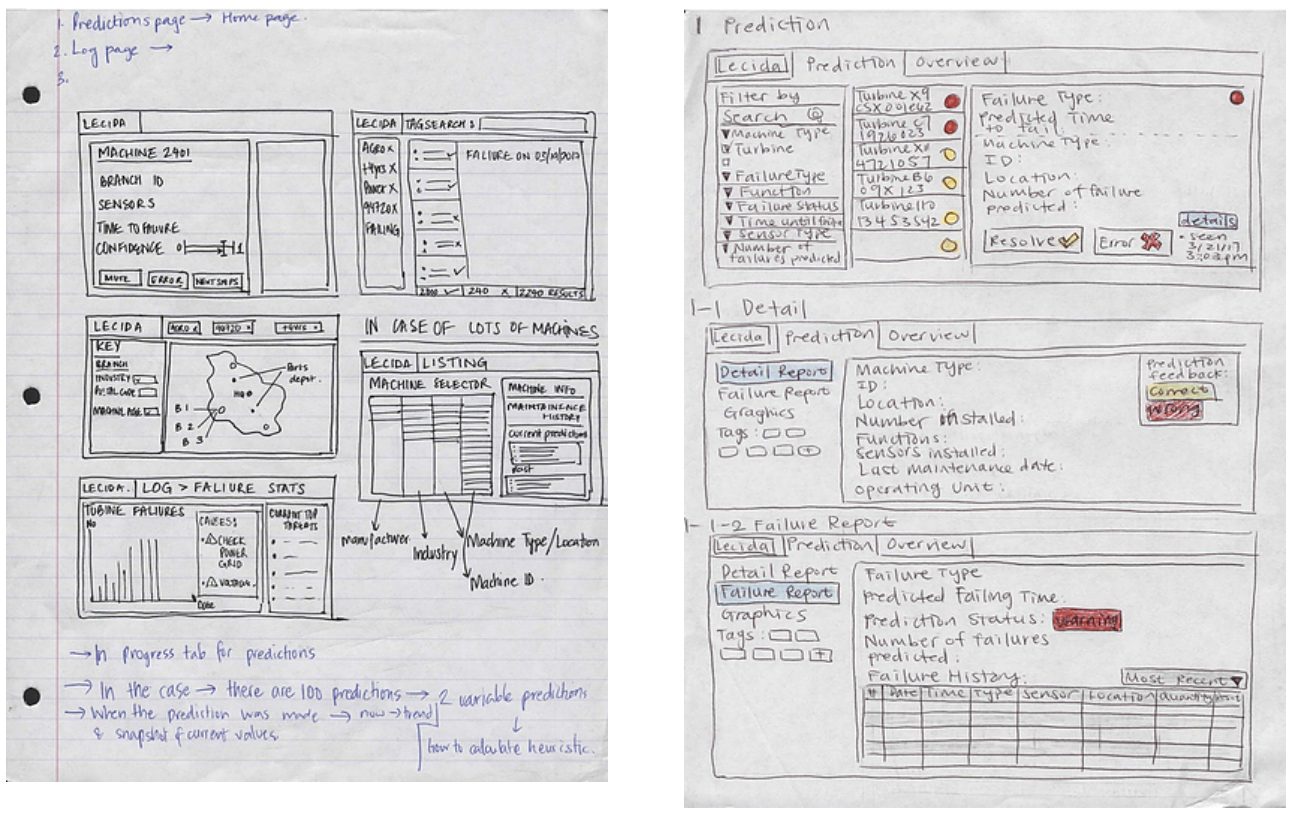 1. Predictions page → Home page.
2. Log page →
3.
LECIDA
MACHINE 2401
BRANCH ID
SENSORS
TIME TO FAILURE
CONFIDENCE 0 1
MUTE ERROR NEXT STEPS
LECIDA TAGSEARCH :
AGRO x
+4yrs x
Power x
94720 x
FAILING
FALIURE ON 05/10/2017
2000 ✓ 240 x 2240 RESULTS
LECIDA AGRO x 94720 x +4yrs x
KEY
BRANCH
INDUSTRY
POSTAL CODE
MACHINE AGE
HQ
Parts
depot.
B 1
B 2
B 3
IN CASE OF LOTS OF MACHINES
LECIDA LISTING
MACHINE SELECTOR
MACHINE INFO
MAINTAINENCE
HISTORY
Current predictions
Past
manufacturer
Industry
Machine Type/Location
Machine ID.
LECIDA. LOG > FALIURE STATS
TUBINE FALIURES
No
Date
CAUSES:
CHECK
POWER
GRID
VOLTAGE.
CURRENT TOP
THREATS
→ In progress tab for predictions
→ In the case → there are 100 predictions → 2 variable predictions
→ When the prediction was made → now → trend
& snapshot of current values.
how to calculate heuristic.
1 Prediction
Lecida Prediction Overview
Filter by
Search
▼ Machine Type
Turbine
▼ Failure Type
▼ Function
▼ Failure status
▼ Time until failure
▼ Sensor Type
▼ Number of
failures predicted
Turbine X9
CSX001E42
Turbine C7
1926023
Turbine X11
4721057
Turbine B6
09X123
Turbine 110
13453542
Failure Type:
Predicted Time
to fail:
Machine Type:
ID:
Location:
Number of failure
predicted:
details
Resolve ✓ Error ✗
• seen
3/21/17
3:02pm
1-1 Detail
Lecida Prediction Overview
Detail Report
Failure Report
Graphics
Tags :
Machine Type:
ID:
Location:
Number installed:
Functions:
Sensors installed:
Last maintenance date:
Operating Unit:
Prediction
feedback:
Correct
Wrong
1-1-2 Failure Report
Lecida Prediction Overview
Detail Report
Failure Report
Graphics
Tags :
Failure Type
Predicted Failing Time:
Prediction Status: Warning
Number of failures
predicted:
Failure History:
Most Recent ▼
# Date Time Type Sensor Location Quantity